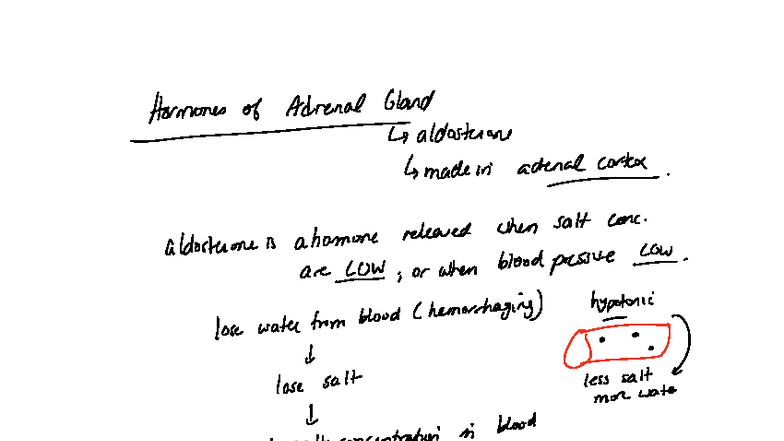 Hormones of Adrenal Gland
↳ aldosterone
↳ made in adrenal cortex.
aldosterone is a hormone released when salt conc.
are LOW, or when blood pressure LOW.
lose water from blood (hemorrhaging)
↓
lose salt
↓
concentration in blood
hypotonic
less salt
more water